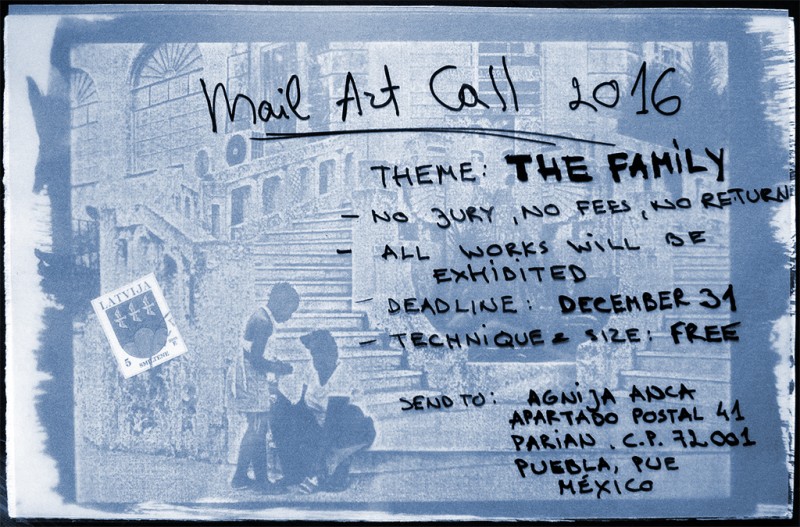 Mail Art Call 2016
THEME: THE FAMILY
- NO JURY, NO FEES, NO RETURN
- ALL WORKS WILL BE
EXHIBITED
- DEADLINE: DECEMBER 31
- TECHNIQUE & SIZE: FREE
LATVIJA
5
SMILTENE
SEND TO: AGNIJA ANCA
APARTADO POSTAL 41
PARIAN. C.P. 72001
PUEBLA, PUE
MÉXICO